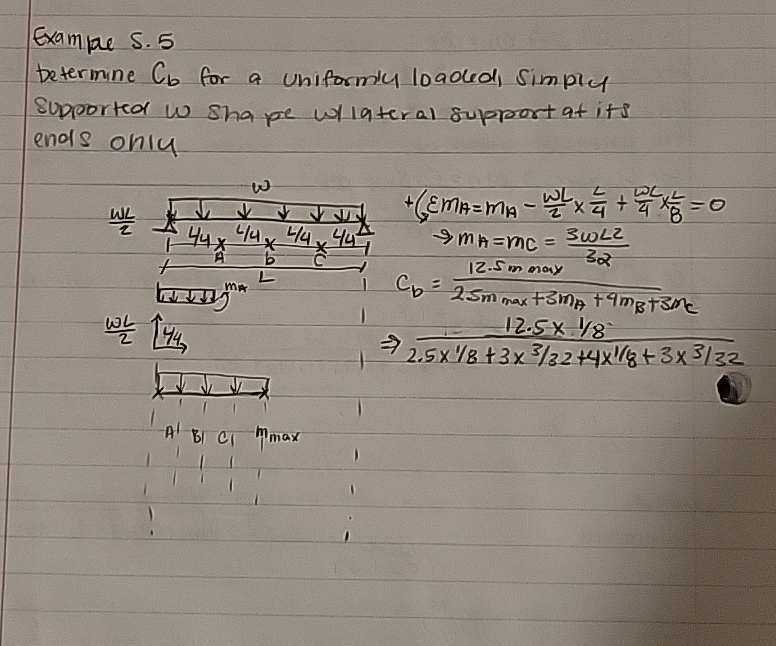 Example 5.5
Determine Cb for a uniformly loaded, simply
supported W shape w/ lateral support at its
ends only
w
wL/2
L/4 L/4 L/4 L/4
A b C
L
mA
wL/2
L/4
A B C mmax
+(ΣmA = mA - wL/2 × L/4 + wL/4 × L/8 = 0
→ mA = mC = 3wL2/32
Cb = 12.5m max / 2.5m max + 3mA + 4mB + 3mC
⇒ 12.5 × 1/8 / 2.5 × 1/8 + 3 × 3/32 + 4 × 1/8 + 3 × 3/32